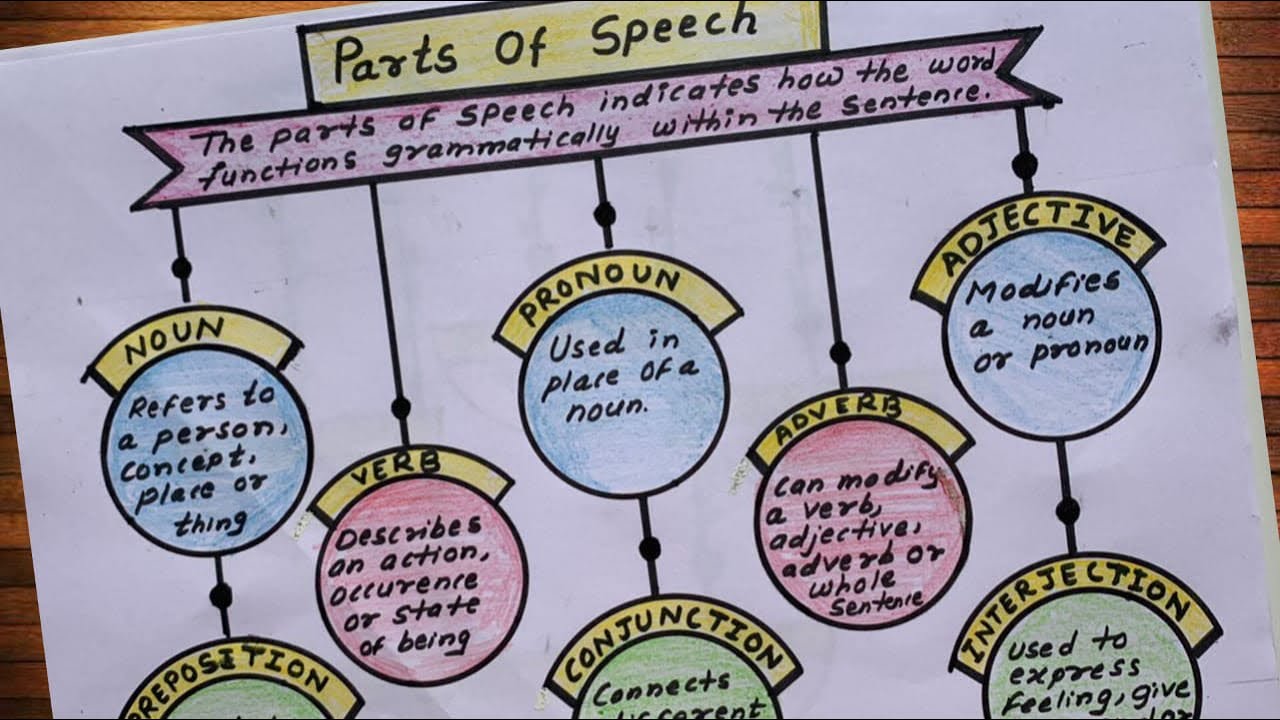 Parts Of Speech
The parts of speech indicates how the word
functions grammatically within the sentence.
NOUN
Refers to
a person,
concept,
place or
thing
VERB
Describes
an action,
occurence
or state
of being
PRONOUN
Used in
place of a
noun.
ADVERB
Can modify
a verb,
adjective,
adverb or
whole
sentence
ADJECTIVE
Modifies
a noun
or pronoun
PREPOSITION
CONJUNCTION
Connects
different
INTERJECTION
used to
express
feeling, give